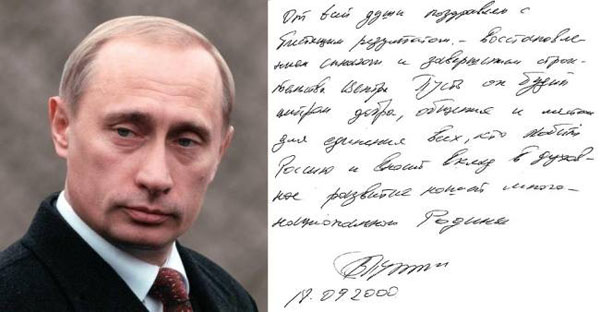 От всей души поздравляю с
блестящим результатом - восстановле-
нием синагоги и завершением строи-
тельства Центра Пусть он будет
центром добра, общения и местом
для единения всех, кто любит
Россию и вносит вклад в духов-
ное развитие нашей много-
национальной Родины
18.09.2000